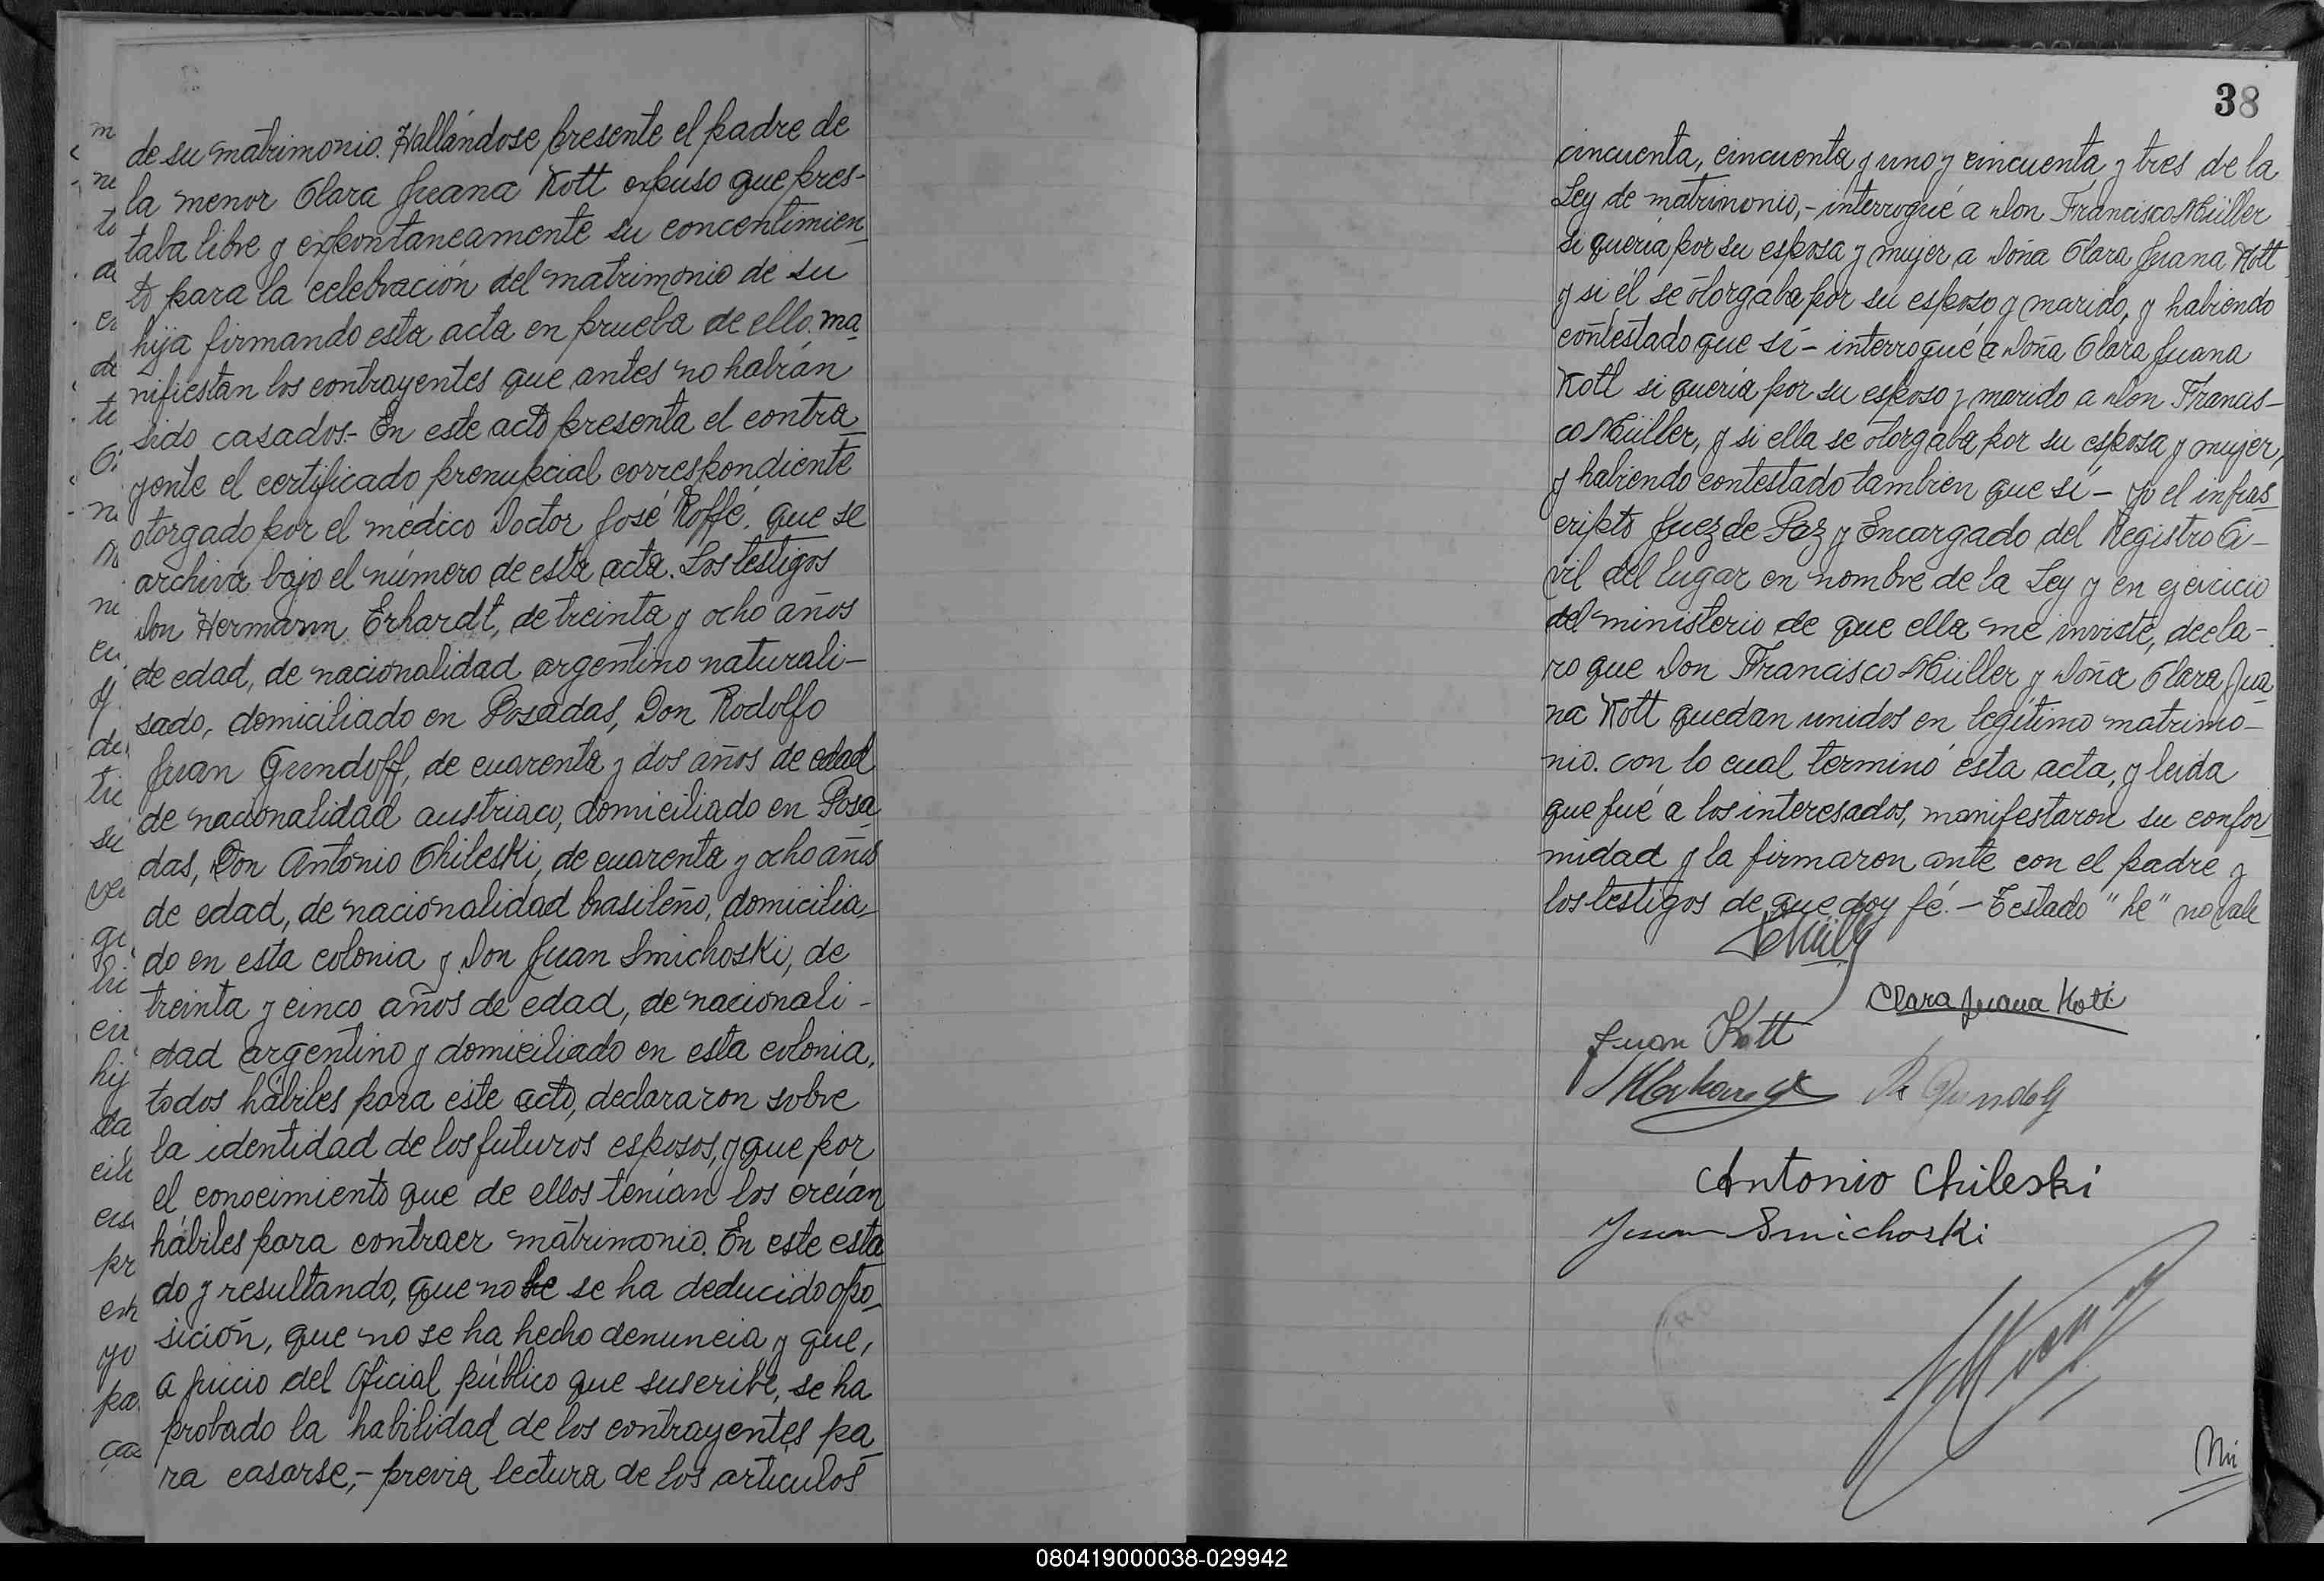 de su matrimonio. Hallándose presente el padre de
la menor Clara Juana Kott expuso que pres-
taba libre y expontaneamente su concentimien
to para la celebración del matrimonio de su
hija firmando esta acta en prueba de ello. ma
nifiestan los contrayentes que antes no habian
sido casados.- En este acto presenta el contra
yente el certificado prenupcial correspondiente
otorgado por el médico Doctor José Roffé. que se
archiva bajo el número de esta acta. Los testigos
Don Hermann Erhardt, de treinta y ocho años
de edad, de nacionalidad argentino naturali-
sado, domiciliado en Posadas, Don Rodolfo
Juan Gundoff, de cuarenta y dos años de edad
de nacionalidad austriaco, domiciliado en Posa
das, Don Antonio Chileski, de cuarenta y ocho años
de edad, de nacionalidad brasileño, domicilia-
do en esta colonia y Don Juan Smichoski, de
treinta y cinco años de edad, de nacionali-
dad argentino y domiciliado en esta colonia,
todos hábiles para este acto, declararon sobre
la identidad de los futuros esposos, y que por
el conocimiento que de ellos tenían los creían
hábiles para contraer matrimonio. En este esta
do y resultando, que no he se ha deducido opo-
sición, que no se ha hecho denuncia y que,
a juicio del Oficial público que suscribe, se ha
probado la habilidad de los contrayentes pa
ra casarse,- previa lectura de los artículos
38
cincuenta, cincuenta y uno y cincuenta y tres de la
Ley de matrimonio,- interrogué a Don Francisco Müller
si quería por su esposa y mujer a Doña Clara Juana Kott
y si él se otorgaba por su esposo y marido, y habiendo
contestado que sí - interrogué a Doña Clara Juana
Kott si quería por su esposo y marido a Don Francis-
co Müller, y si ella se otorgaba por su esposa y mujer,
y habiendo contestado tambien que sí - yo el infras
cripto Juez de Paz y Encargado del Registro Ci-
vil del lugar en nombre de la Ley y en ejercicio
del ministerio de que ella me inviste, decla-
ro que Don Francisco Müller y Doña Clara Jua
na Kott quedan unidos en legítimo matrimo-
nio. con lo cual terminó esta acta, y leida
que fué a los interesados, manifestaron su confor
midad y la firmaron ante con el padre y
los testigos de que doy fé.- Testado "he" no vale
Clara Juana Kott
Juan Kott
Antonio Chileski
Juan Smichoski
080419000038-029942